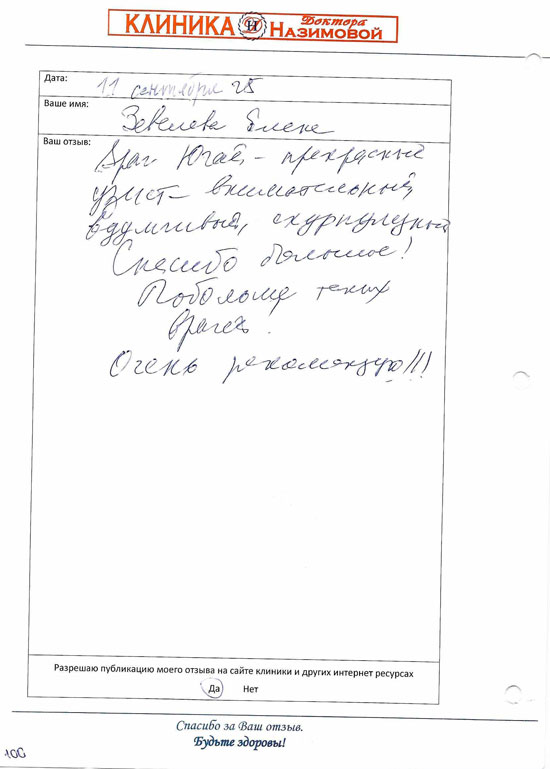 КЛИНИКА Доктора НАЗИМОВОЙ
Дата: 11 сентября 25
Ваше имя: Зевелева Елена
Ваш отзыв:
Врач Югай – прекрасный
узист – внимательный,
вдумчивый, скурпулезный
Спасибо большое!
Побольше таких
врачей!
Очень рекомендую!!!
Разрешаю публикацию моего отзыва на сайте клиники и других интернет ресурсах
Да Нет
Спасибо за Ваш отзыв.
Будьте здоровы!